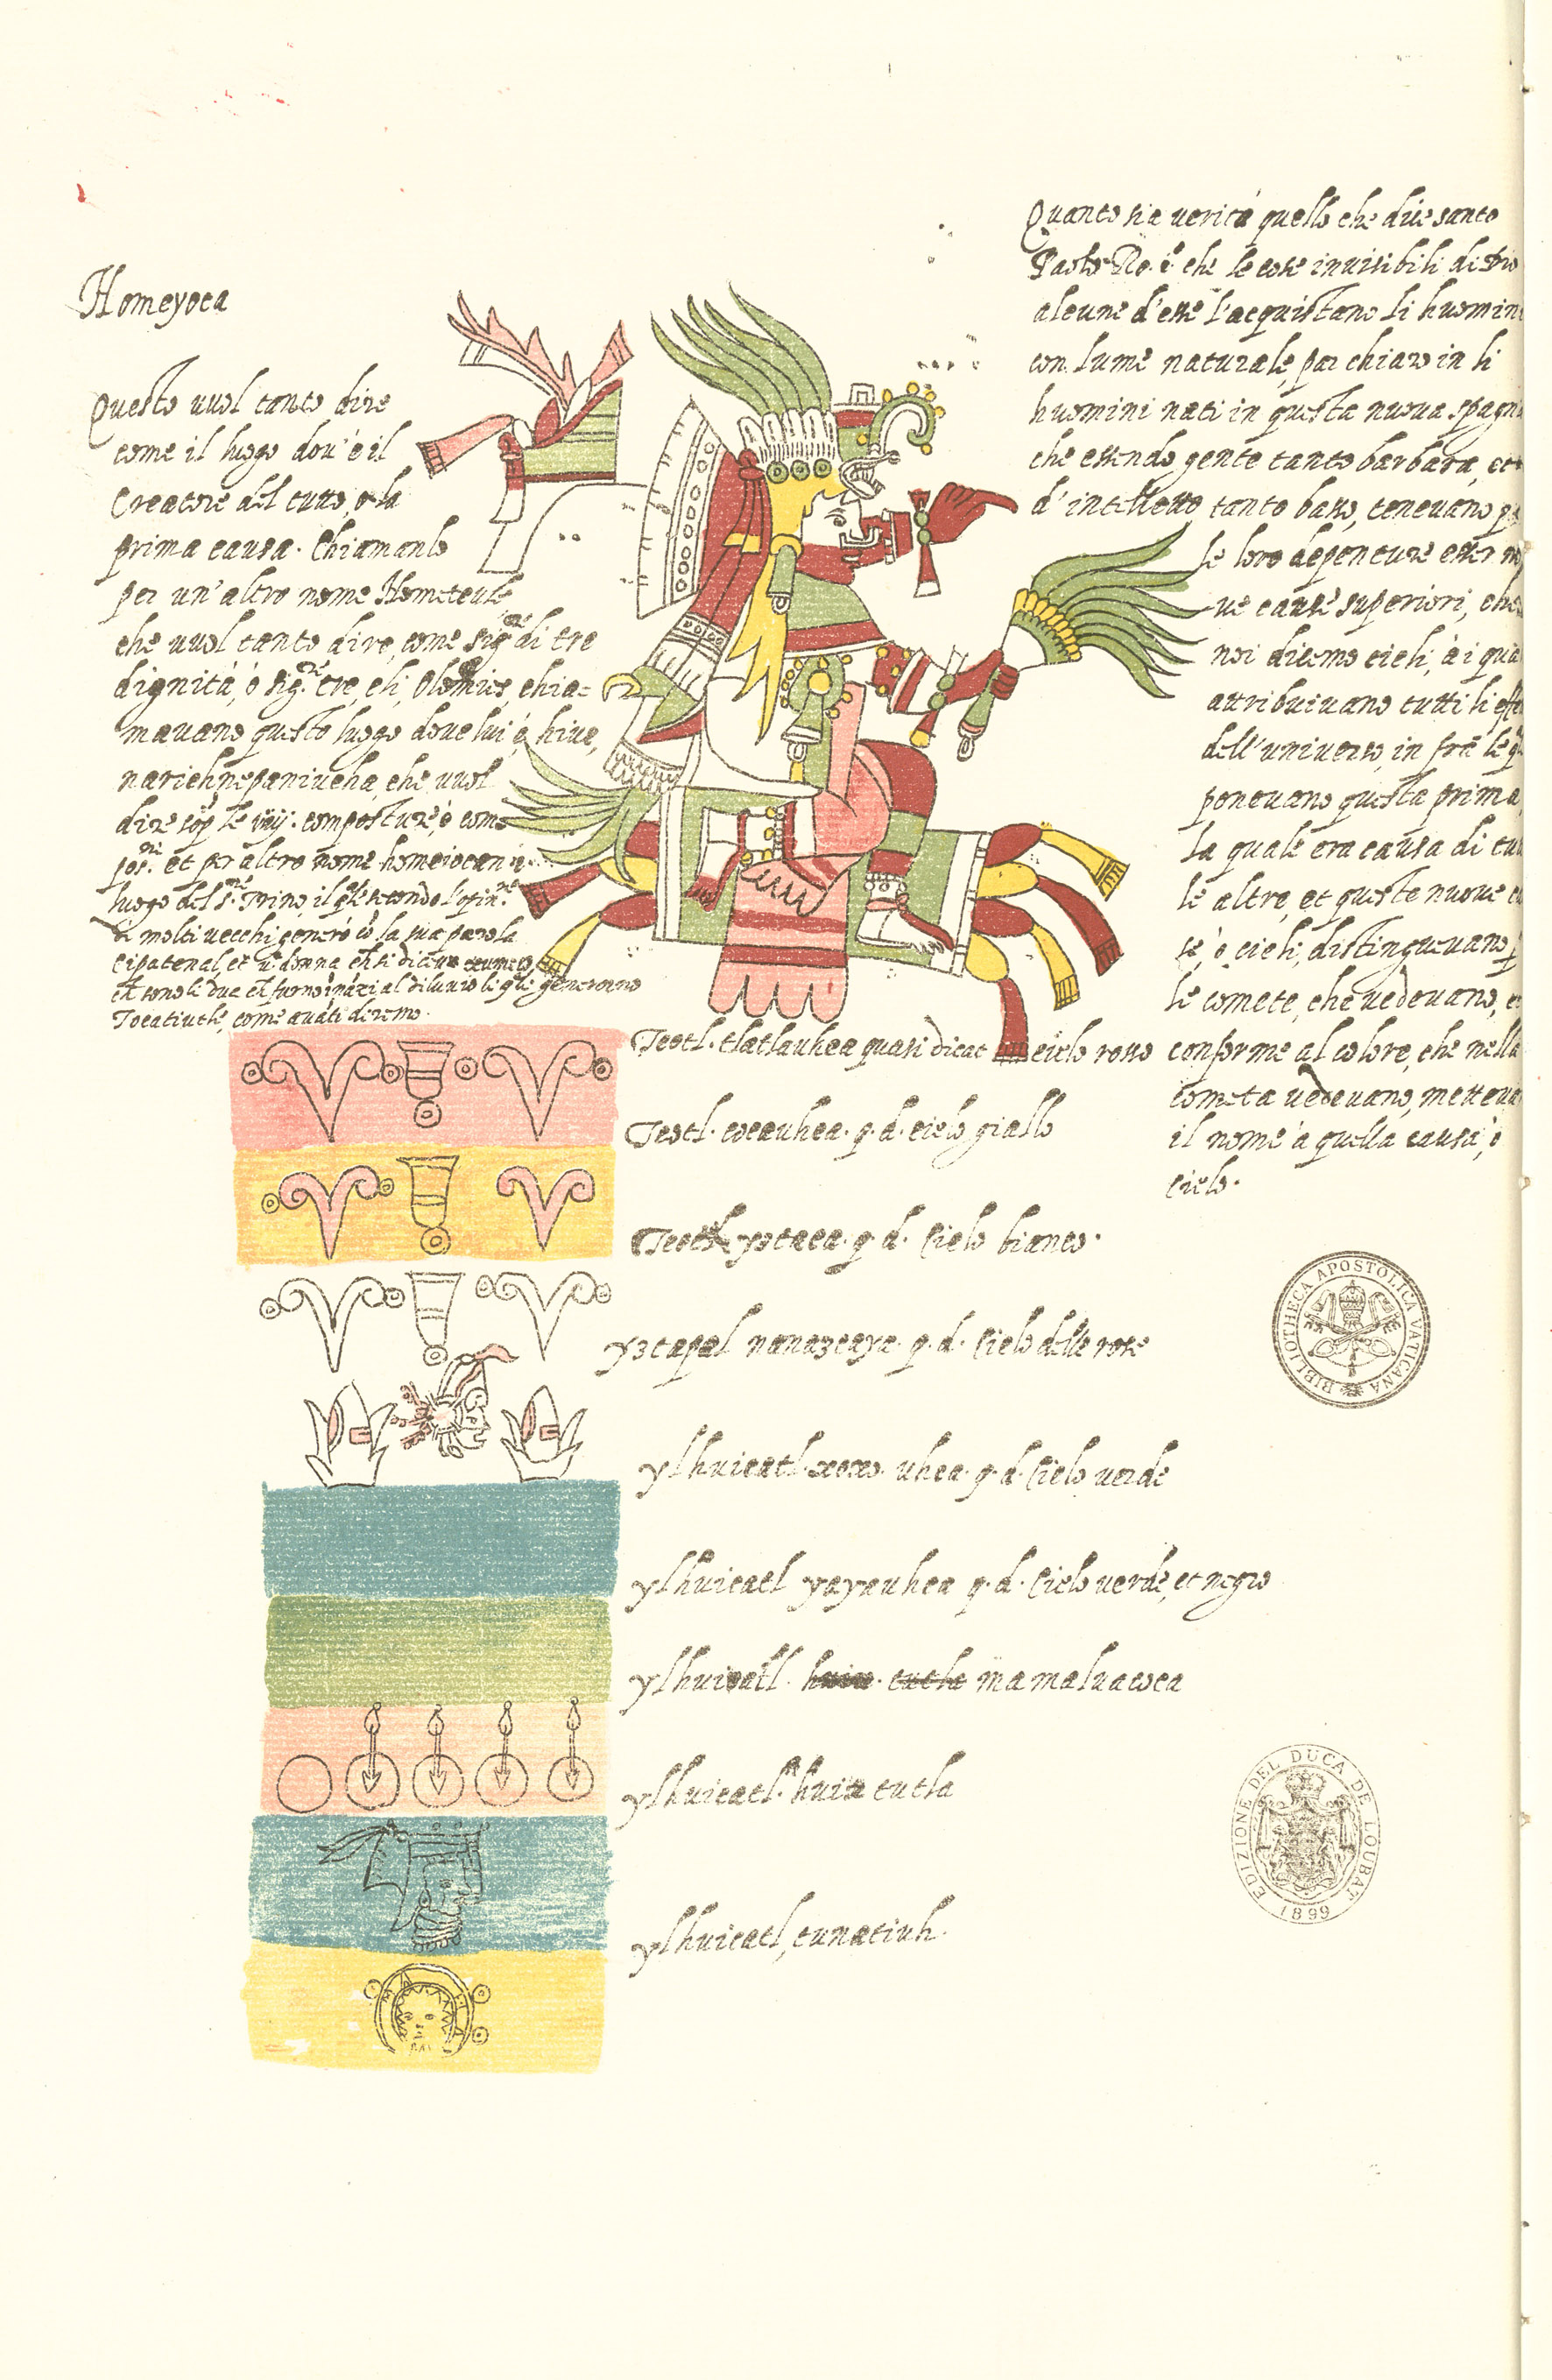 Homeyoca
Questo vuol tanto dire
come il luogo dov'è il
Creatore del tutto, o la
prima causa. Chiamanlo
per un'altro nome Hometeule
che vuol tanto dire, come sig.re di tre
dignità, ò sig.re tre, eli, Olomris, chia=
mavano questo luogo dove lui è, hive,
narichnepaniucha, che vuol
dire sop.a le viiij. composture, ò com
pos.ni et per altro nome homeiocan i
luogo del s.re Trino, il q.le secondo l'opin.ne
di molti vecchi generò cō la sua parola
Cipatenal, et u.a donna ch si dice
et sono li dua ch furno inãzi al diluvio li q.li generorno
Tocatiutle, come avãti diremo.
Quanto sia verità quello che dice santo
Paolo Ro. i. che le cose invisibili di Dio
alcune d'esse l'acquistano li huomini
con lume naturale, par chiaro in li
huomini nati in questa nuova spagn
che essendo gente tanto barbara, et
d'intelletto tanto basso, tenevano p
le loro depenture esser no
ve cause superiori, che
noi dicemo cieli, à i qua
attribuivano tutti li effe
dell'universo, in frà le q
ponevano questa prima
la quale era causa di tu
le altre, et queste nuove ca
se, ò cieli, distinguevano p
le comete, che vedevano, e
conforme al colore, che nella
cometa vedevano, metteva
il nome à quella causa, ò
Cielo.
Teotl. tlatlauhca quasi dicat cielo rosso
Teotl. cocauhca. q. d. cielo giallo
Teotl yztaca. q. d. Cielo bianco.
yztapal nanazcaya. q. d. Cielo delle rose
ylhuicatl. xoxo. uhca. q. d. Cielo verde
ylhuicatl yayauhca q. d. Cielo verde, et negro
ylhuicatl. mamaluacoca
ylhuicatl. huix tutla
ylhuicatl, tunatiuh.
BIBLIOTHECA APOSTOLICA VATICANA
EDIZIONE DEL DUCA DE LOUBAT
1899